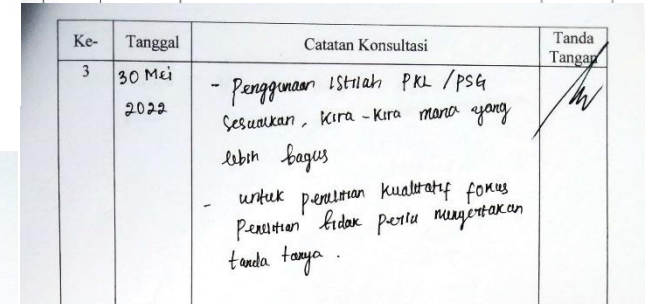 Ke- Tanggal Catatan Konsultasi Tanda Tangan
3 30 Mei 2022
- Penggunaan istilah PKL / PSG
sesuaikan, kira-kira mana yang
lebih bagus
- untuk penelitian kualitatif fokus
penelitian tidak perlu menyertakan
tanda tanya.